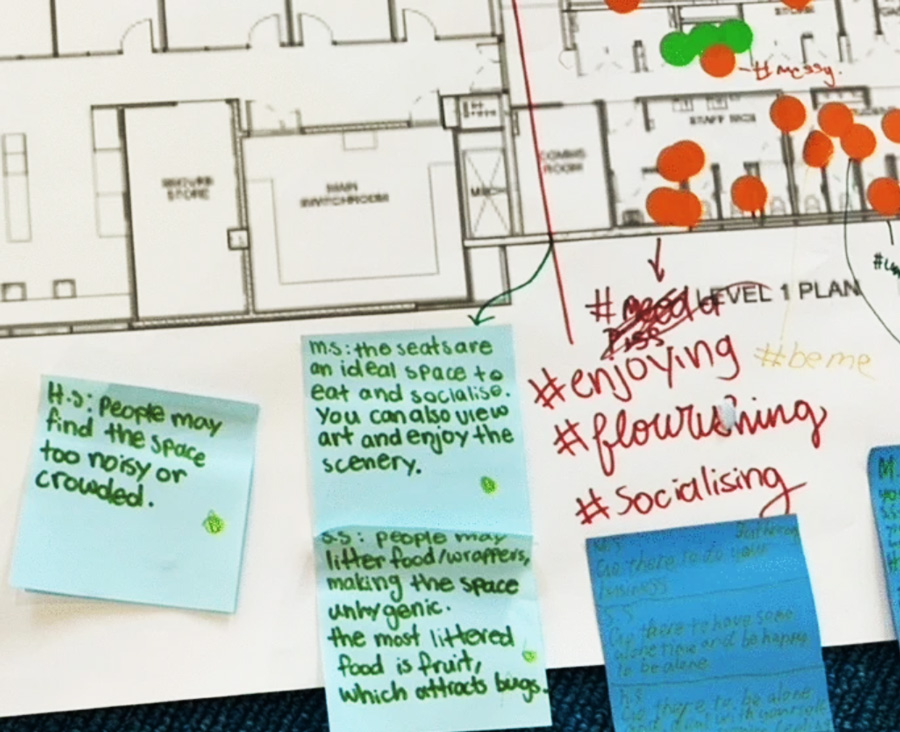 #messy.
STAFF
COMMS
ROOM
STORE
MAIN
SWITCHROOM
LEVEL 1 PLAN
#need a
Piss
#enjoying
#beme
#flourishing
#Socialising
H.S: People may
find the space
too noisy or
crowded.
M.S: the seats are
an ideal space to
eat and socialise.
You can also view
art and enjoy the
scenery.
S.S: people may
litter food/wrappers,
making the space
unhygenic.
the most littered
food is fruit,
which attracts bugs.
Go there to do your
business
S.S
Go there to have some
alone time and be happy
to be alone
h.s
Go there to be alone